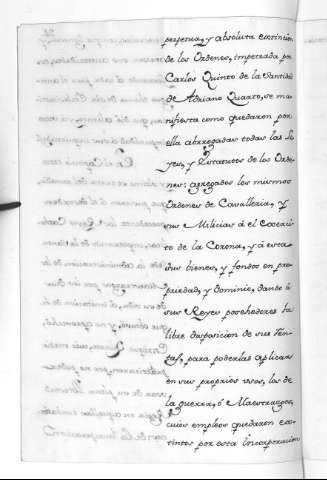 perpetua, y absoluta extincion
de los Ordenes, impetrada por
Carlos Quinto de la Santidad
de Adriano Quarto, se ma-
nifiesta como quedaron por
ella abrregadas todas las Le-
yes, y Estatutos de los Orde-
nes: agregados los mismos
Ordenes de Cavalleria, y
sus Milicias á el
to de la Corona, y á estas
sus bienes, y fondos en pro-
piedad, y dominio, dando á
sus Reyes posehedores la
libre disposicion de sus Ren-
tas, para poderlas aplicar
en sus proprios usos, los de
la guerra, ó Maestrazgos,
cuios empleos quedaron ex-
tintos por esta Incorporacion